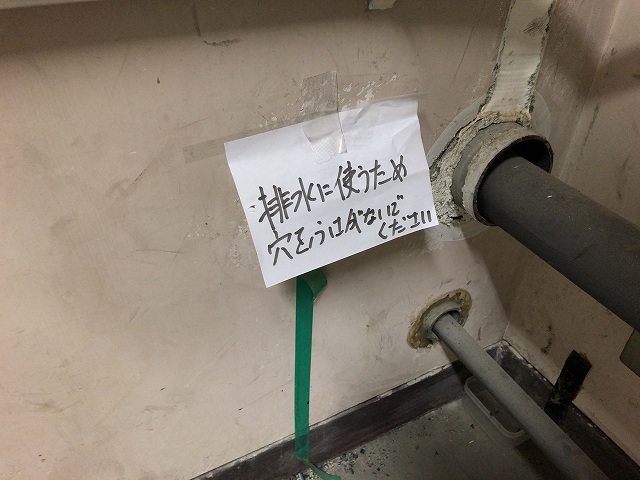 排水に使うため
穴をうはがないで
ください